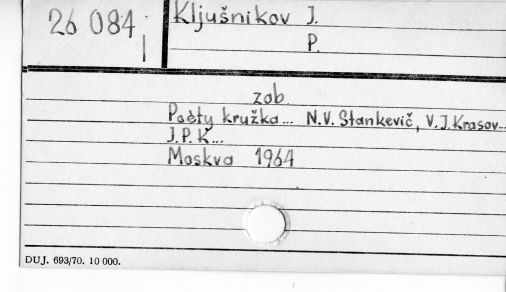 26 084
|
Kljušnikov J.
P.
zob.
Poèty kružka... N.V. Stankevič, V.J. Krasov...
J.P. K...
Moskva 1964
DUJ. 693/70. 10 000.